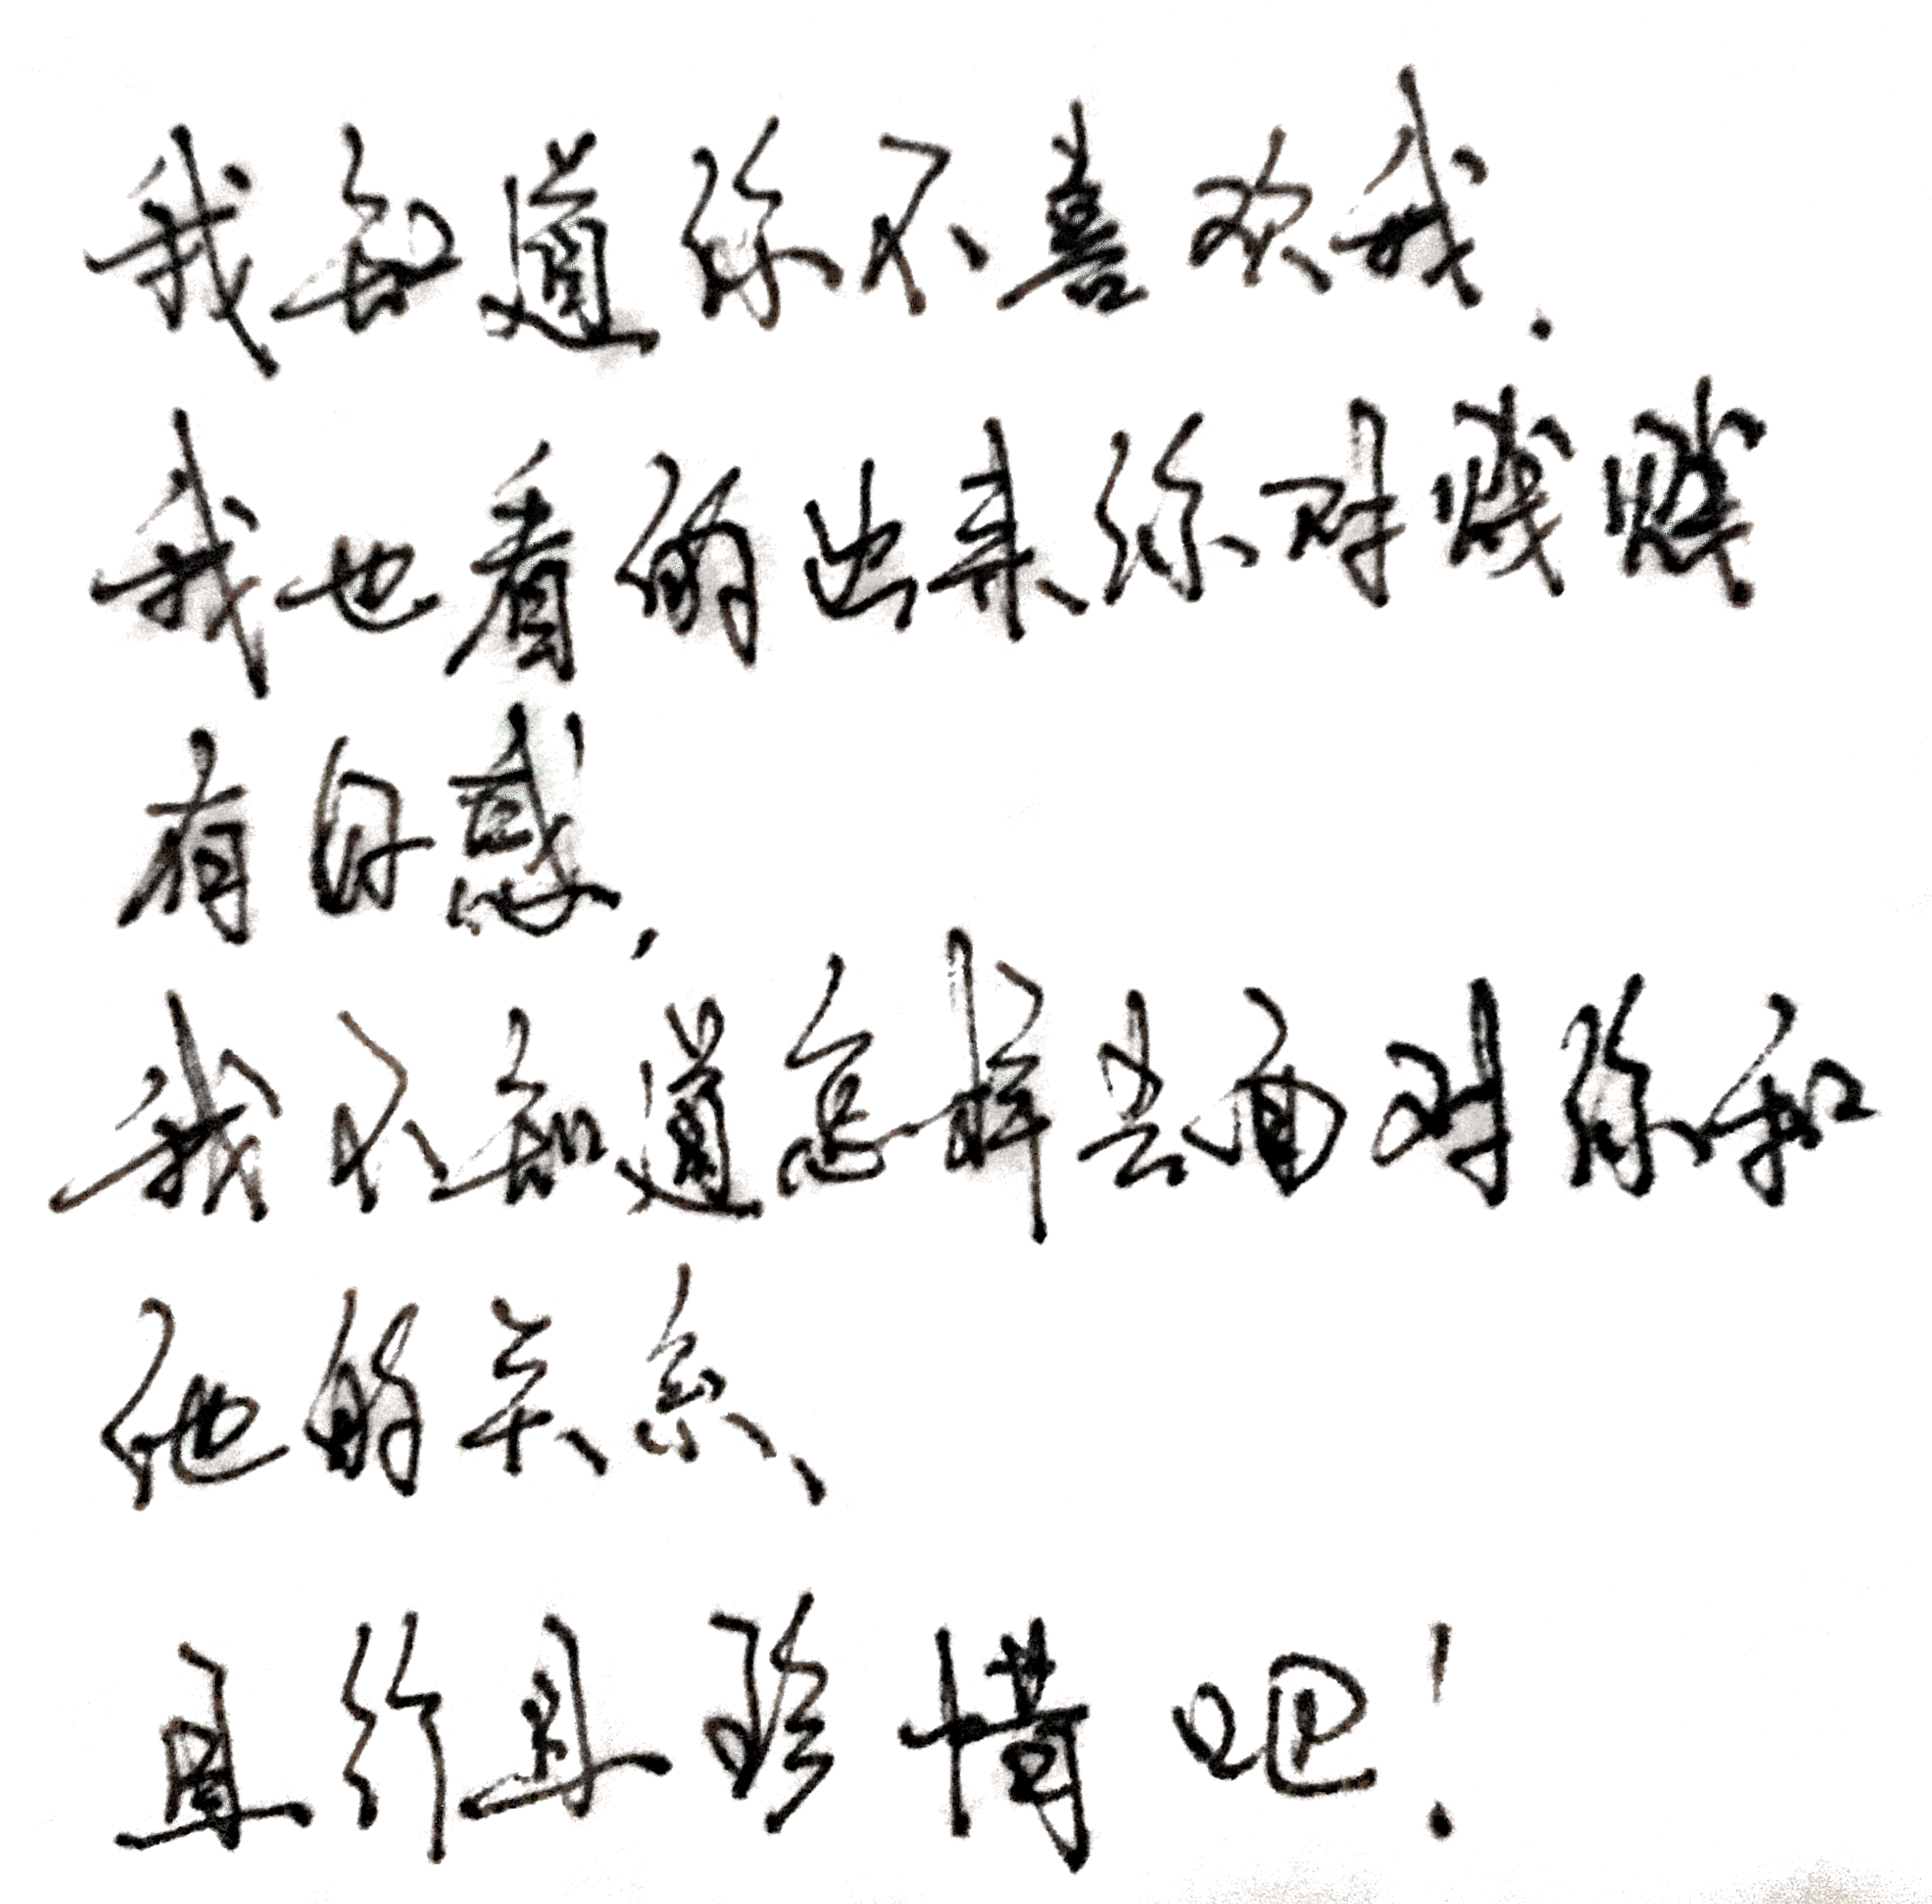 我知道你不喜欢我.
我也看的出来你对贱贱
有好感,
我不知道怎样去面对你和
他的关系、
且行且珍惜吧!